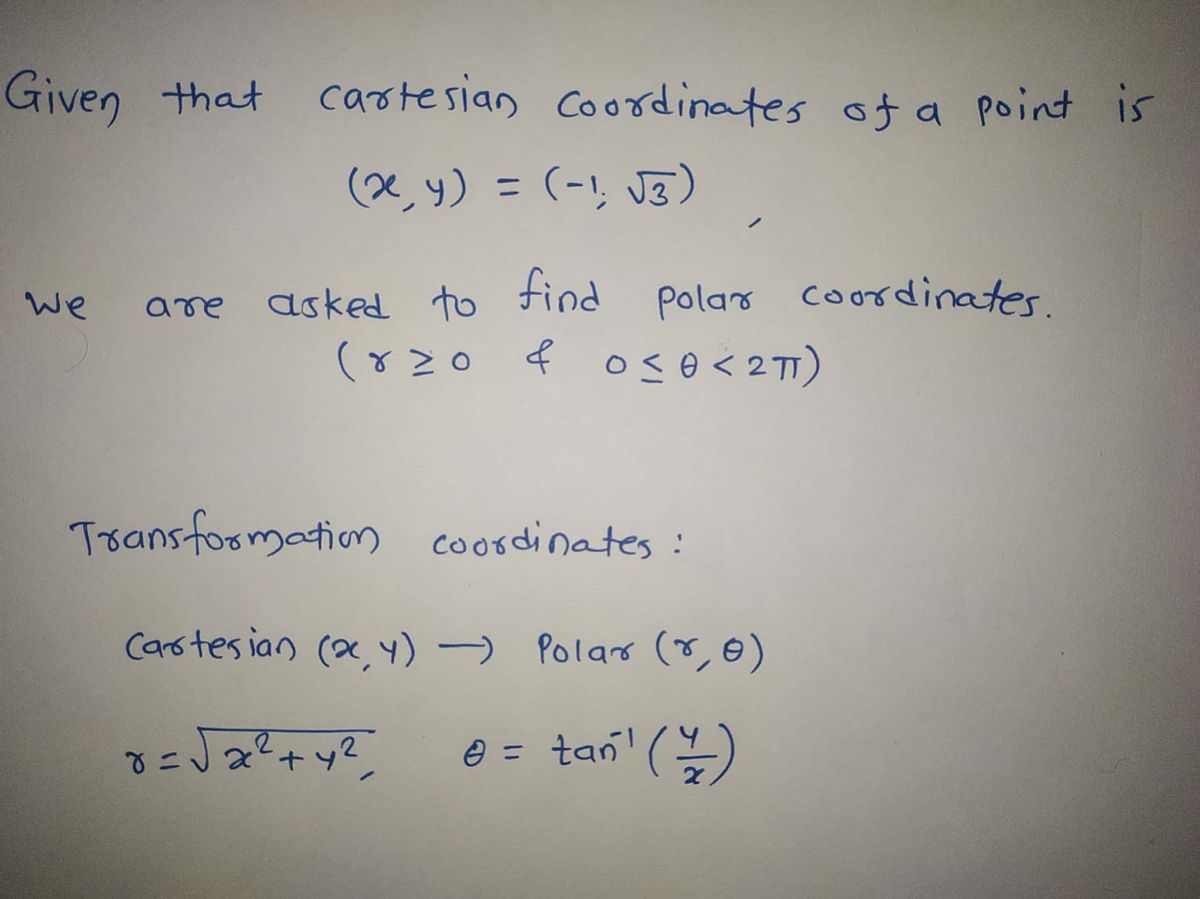 Given that cartesian coordinates of a point is
(x, y) = (-1, √3),
We are asked to find polar coordinates.
(r ≥ 0 & 0 ≤ θ < 2π)
Transformation coordinates :
Cartesian (x, y) → Polar (r, θ)
r = √x²+y², θ = tan⁻¹ (y/x)